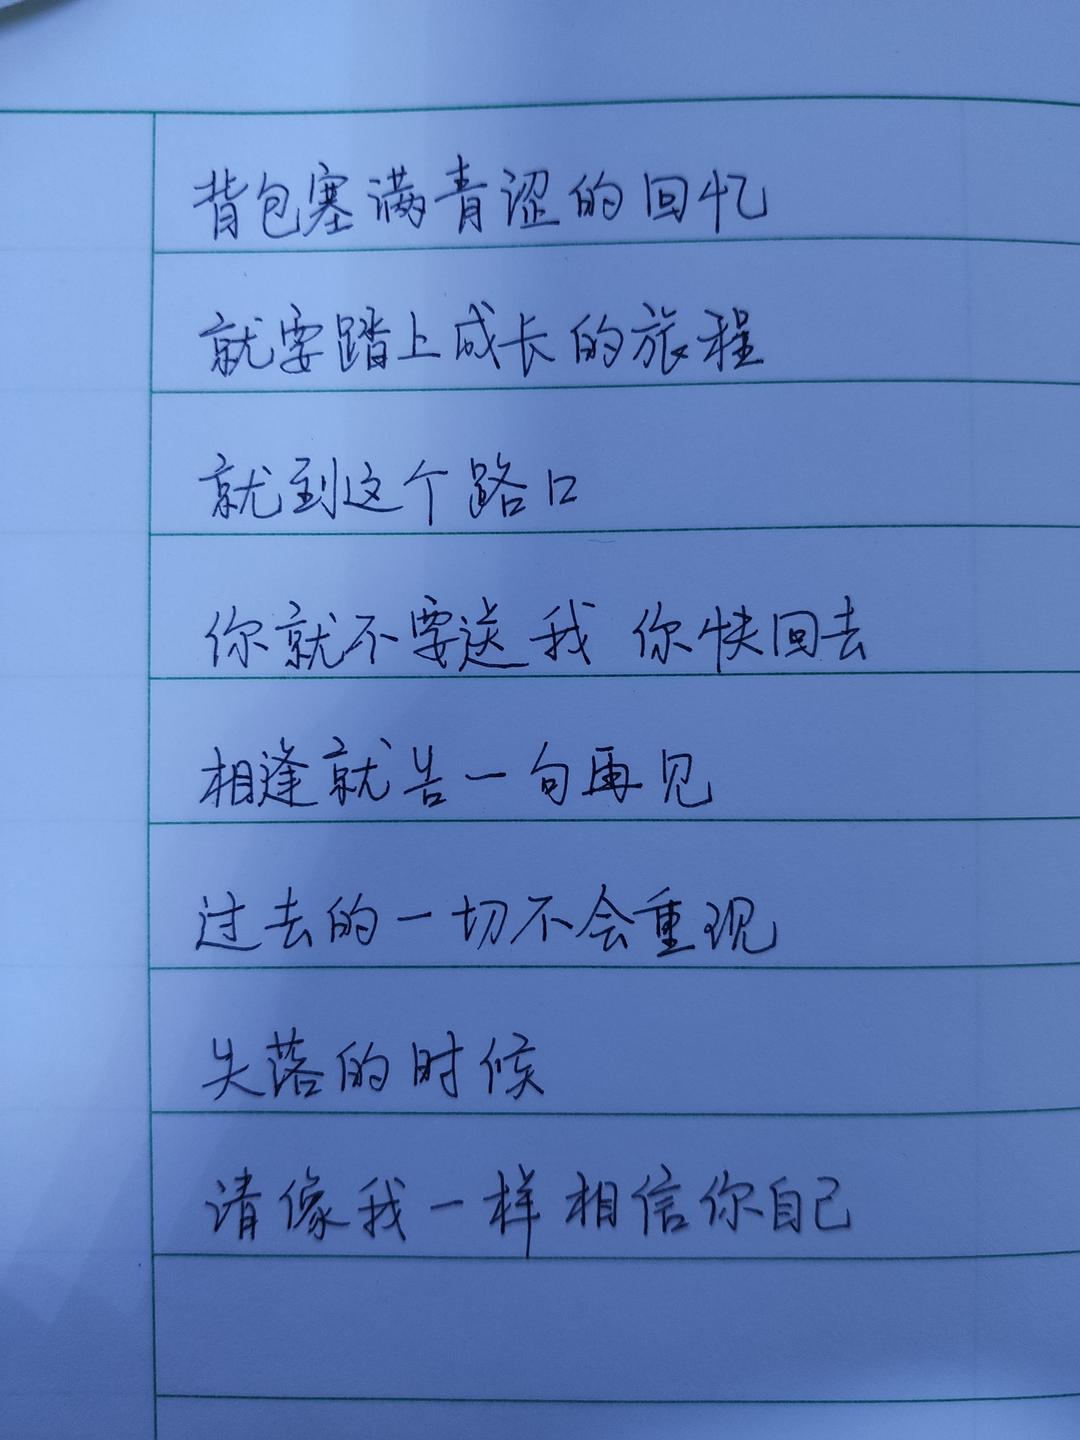 背包塞满青涩的回忆
就要踏上成长的旅程
就到这个路口
你就不要送我 你快回去
相逢就告一句再见
过去的一切不会重现
失落的时候
请像我一样相信你自己